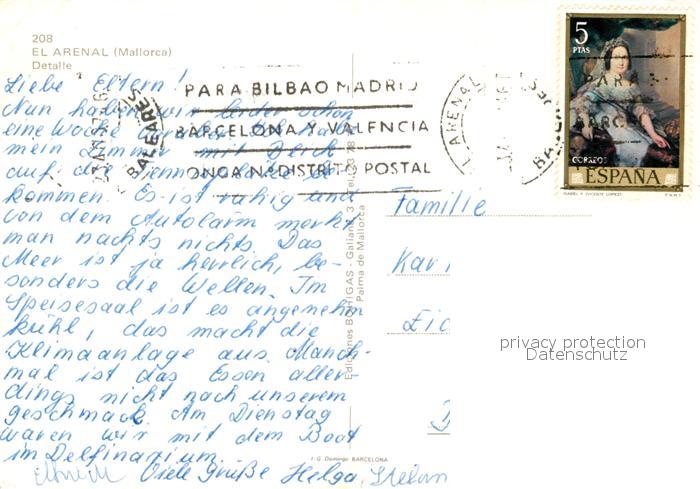 208
EL ARENAL (Mallorca)
Detalle
Liebe Eltern!
Nun haben wir leider schon
eine Woche
mein Zimmer mit Blick
auf die
kommen. Es ist ruhig und
von dem Autolärm merkt
man nachts nichts. Das
Meer ist ja herrlich, be-
sonders die Wellen. Im
Speisesaal ist es angenehm
kühl, das macht die
Klimaanlage aus. Manch-
mal ist das Essen aller-
dings nicht nach unserem
geschmack. Am Dienstag
waren wir mit dem Boot
im Delfinarium.
Viele Grüße Helga, Stefan
PARA BILBAO MADRID
BARCELONA Y VALENCIA
PONGA Nº DISTRITO POSTAL
BALEARES
L ARENAL
Ediciones BOHIGAS - Galiana, 3
Palma de Mallorca
J. G. Domingo BARCELONA
5
PTAS
CORREOS
ESPAÑA
ISABEL II (VICENTE LOPEZ)
F.N.M.T.
Familie
Kar
privacy protection
Datenschutz